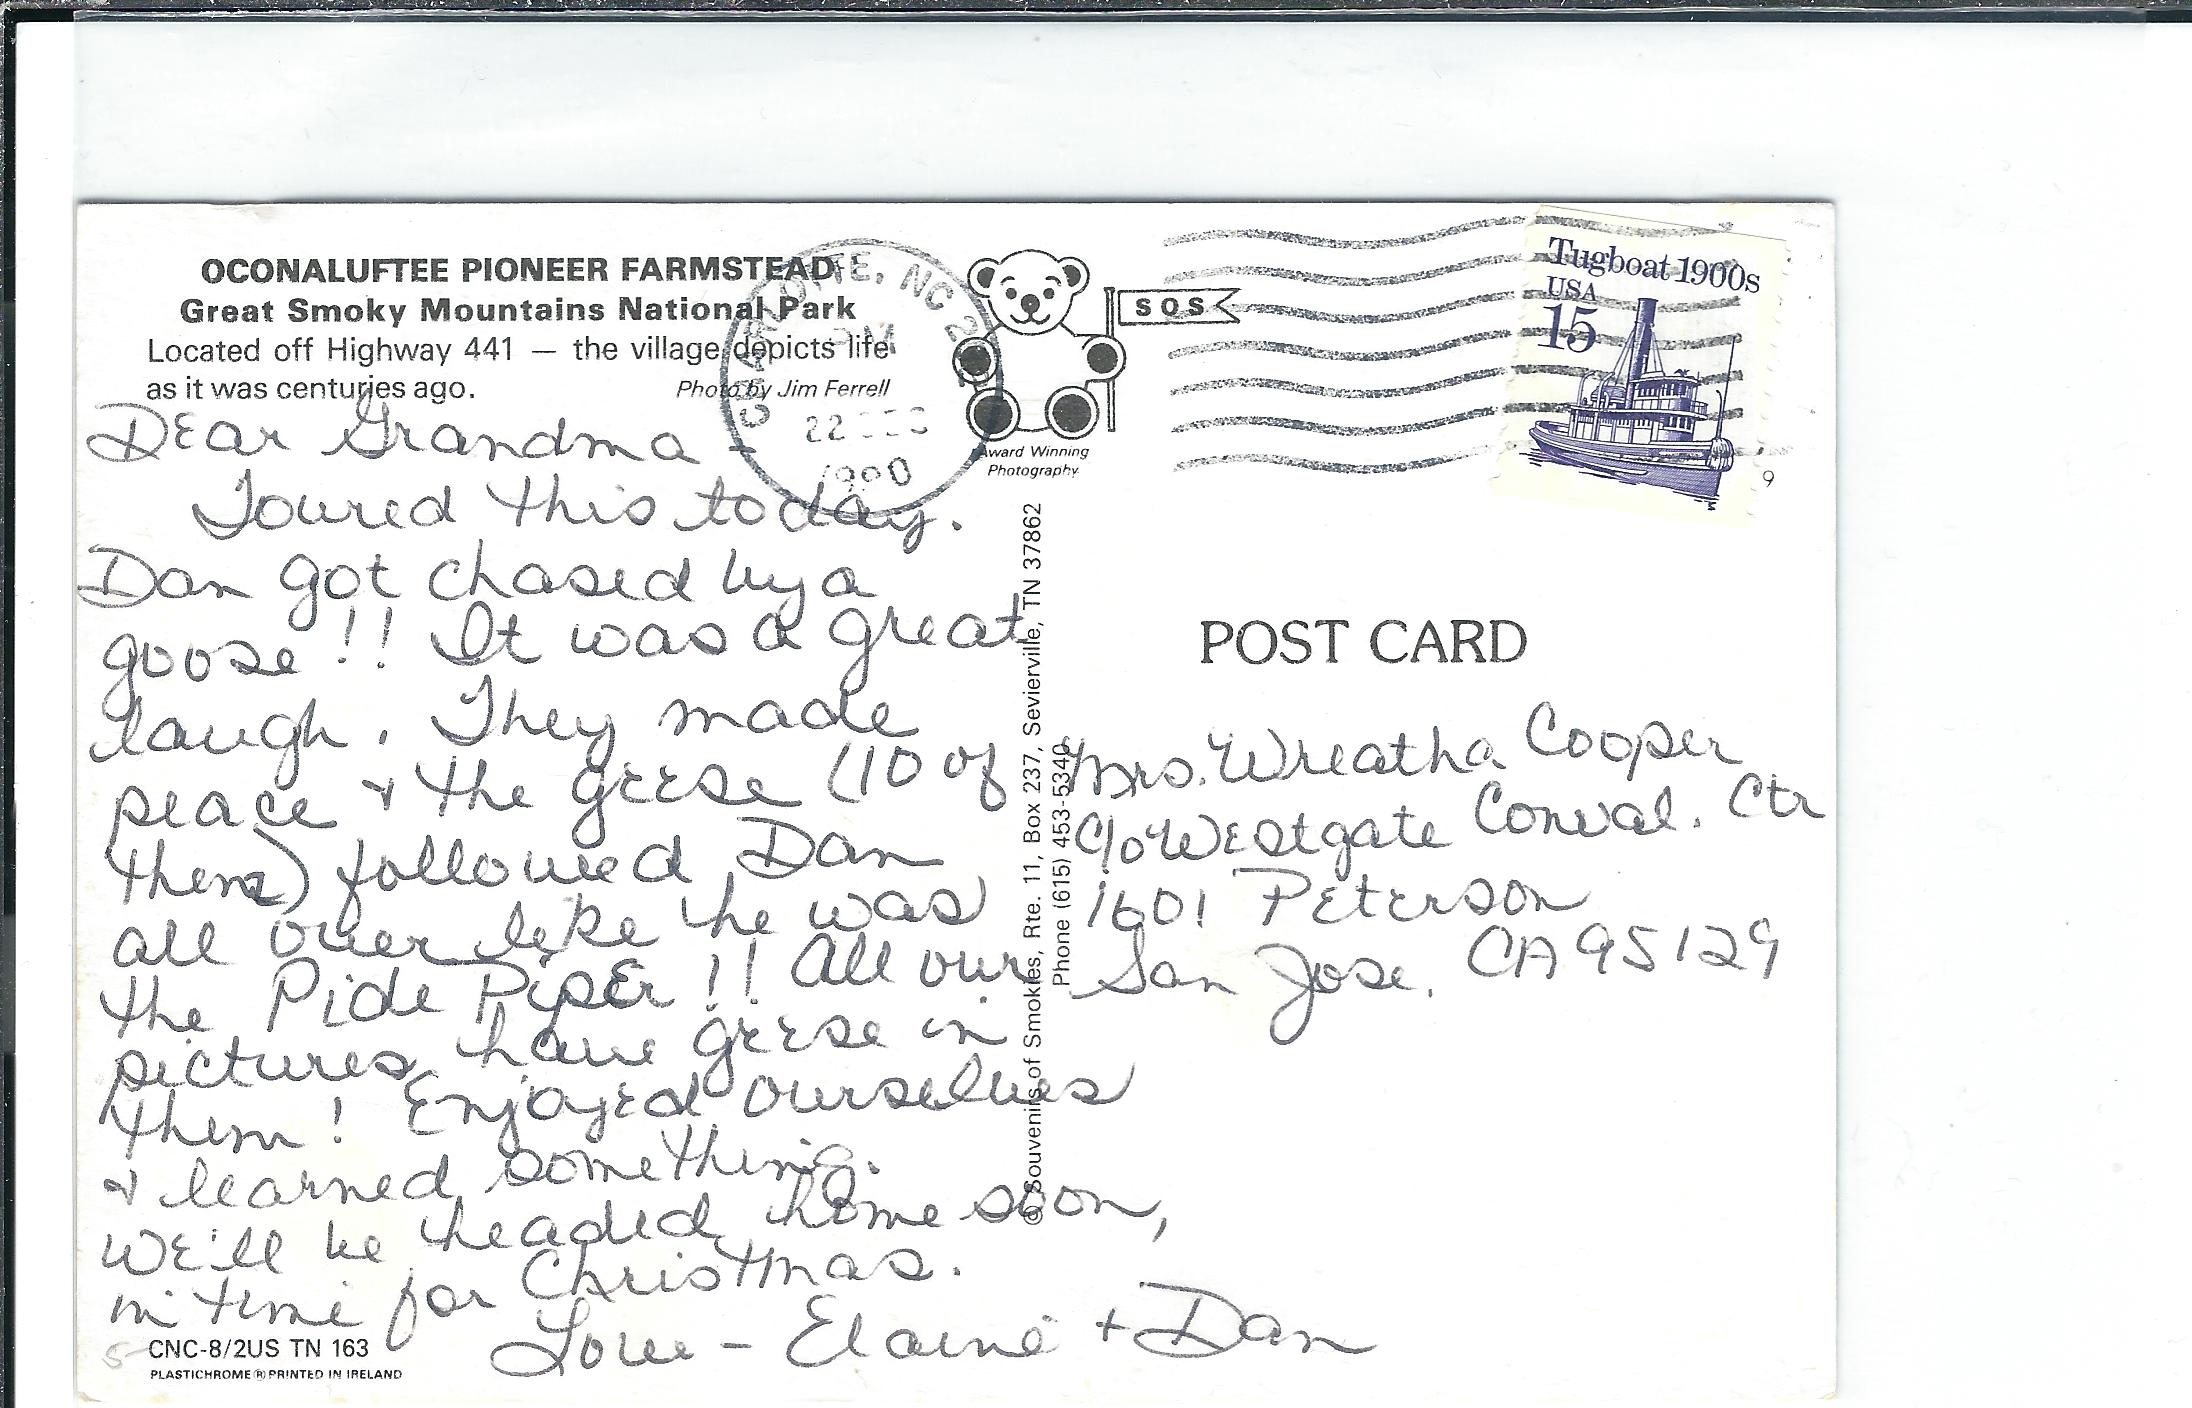 OCONALUFTEE PIONEER FARMSTEAD
Great Smoky Mountains National Park
Located off Highway 441 — the village depicts life
as it was centuries ago.
Photo by Jim Ferrell
CHARLOTTE, NC
PM
22 DEC
1990
SOS
Award Winning
Photography
Tugboat 1900s
USA
15
9
Dear Grandma -
Toured this today.
Dan got chased by a
goose!! It was a great
laugh. They made
peace & the geese (10 of
them) followed Dan
all over like he was
the Pide Piper!! All our
pictures have geese in
them! Enjoyed ourselves
& learned something.
We'll be headed home soon,
in time for Christmas.
Love - Elaine + Dan
© Souvenirs of Smokies, Rte. 11, Box 237, Sevierville, TN 37862
Phone (615) 453-5340
POST CARD
Mrs. Wreatha Cooper
c/o Westgate Conval. Ctr
1601 Peterson
San Jose, CA 95129
5-
CNC-8/2US TN 163
PLASTICHROME® PRINTED IN IRELAND